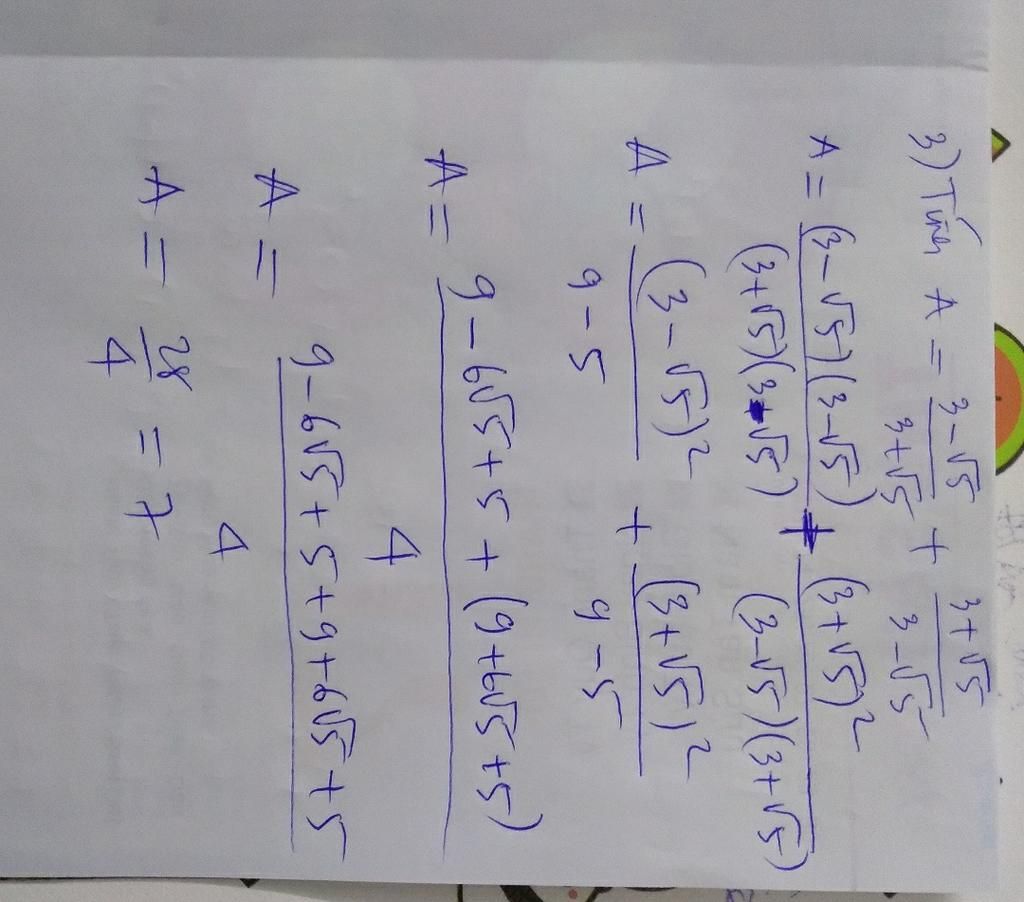 3) Tính A = (3-√5)/(3+√5) + (3+√5)/(3-√5)
A = ((3-√5)(3-√5))/((3+√5)(3-√5)) + (3+√5)²/((3-√5)(3+√5))
A = (3-√5)²/(9-5) + (3+√5)²/(9-5)
A = (9-6√5+5+(9+6√5+5))/4
A = (9-6√5+5+9+6√5+5)/4
A = 28/4 = 7